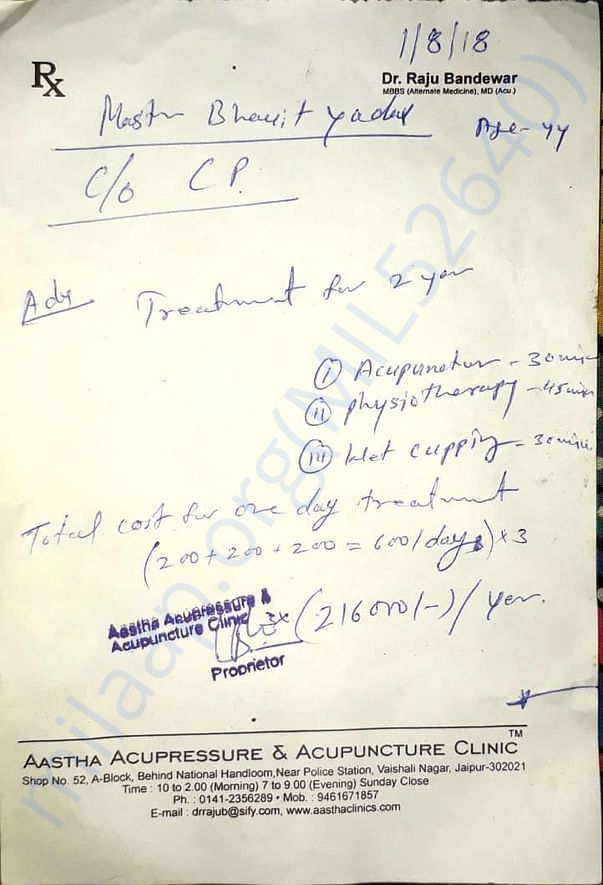 1/8/18
Rx
Dr. Raju Bandewar
MBBS (Alternate Medicine), MD (Acu.)
Yadav Age - 4y
C/o C P.
Adv Treatment for 2 year
(i) Acupunctur - 30 min
(ii) physiotherapy - 45 min
(iii) Wet cupping - 30 min
Total cost for one day treatment
(200 + 200 + 200 = 600/day) × 3
(216000/-)/year.
Aastha Acupressure &
Acupuncture Clinic
Proprietor
AASTHA ACUPRESSURE & ACUPUNCTURE CLINIC™
Shop No. 52, A-Block, Behind National Handloom,Near Police Station, Vaishali Nagar, Jaipur-302021
Time : 10 to 2.00 (Morning) 7 to 9.00 (Evening) Sunday Close
Ph. : 0141-2356289 • Mob. : 9461671857
E-mail : drrajub@sify.com, www.aasthaclinics.com
milaap.org(MIL52640)